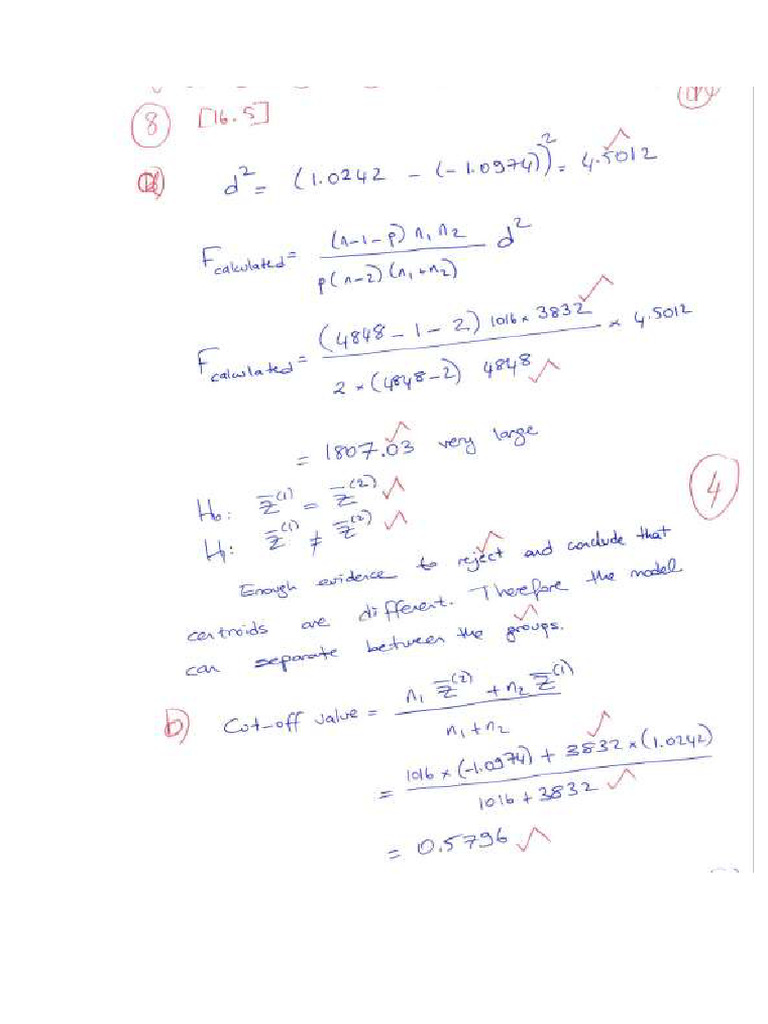 8 [16.5]
a) d² = (1.0242 – (–1.0974))² = 4.5012
Fcalculated = (n–1–p) n₁ n₂ / p(n–2)(n₁+n₂) d²
Fcalculated = (4848–1–2) 1016 × 3832 / 2 × (4848–2) 4848 × 4.5012
= 1807.03 very large
H₀: z̄⁽¹⁾ = z̄⁽²⁾
H₁: z̄⁽¹⁾ ≠ z̄⁽²⁾
4
Enough evidence to reject and conclude that
centroids are different. Therefore the model
can separate between the groups.
b) Cut-off value = n₁ z̄⁽²⁾ + n₂ z̄⁽¹⁾ / n₁+n₂
= 1016 × (–1.0974) + 3832 × (1.0242) / 1016 + 3832
= 0.5796